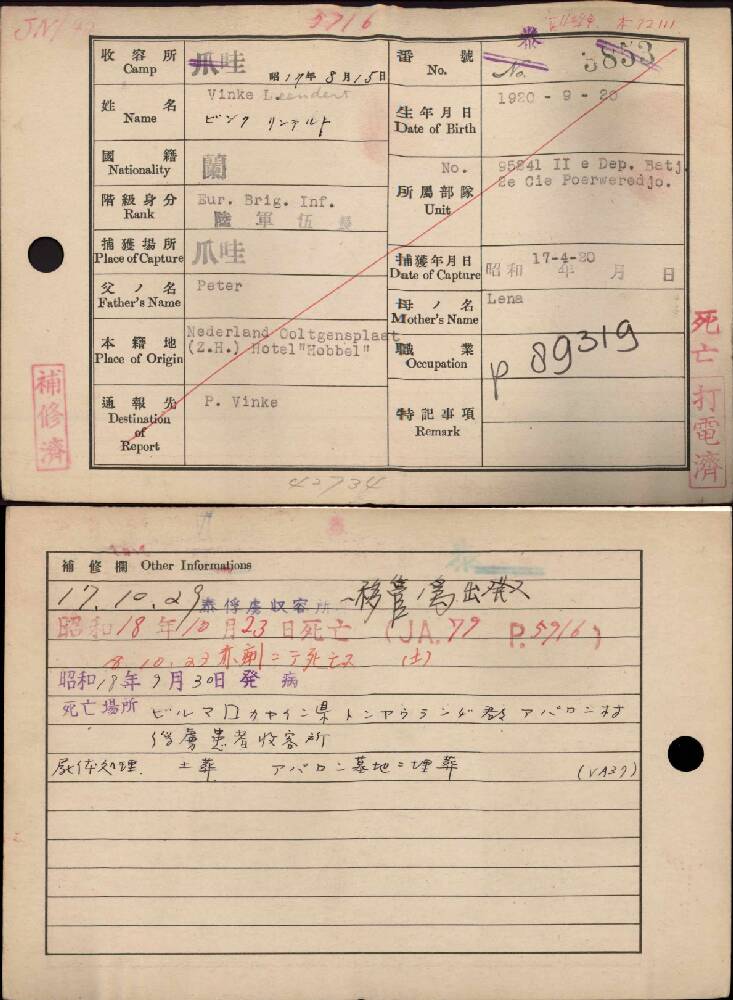 JN/
5716
泰
収容所 Camp 爪哇 昭17年8月15日
番號 No. No. 5853
姓名 Name Vinke Leendert
ビンク リンデルト
生年月日 Date of Birth 1920 - 9 - 20
國籍 Nationality 蘭
階級身分 Rank Eur. Brig. Inf.
陸軍伍長
所屬部隊 Unit No. 95241 II e Dep. Batj.
2e Cie Poerweredjo.
捕獲場所 Place of Capture 爪哇
捕獲年月日 Date of Capture 昭和 17-4-20 年 月 日
父ノ名 Father's Name Peter
母ノ名 Mother's Name Lena
本籍地 Place of Origin Nederland Ooltgensplaat
(Z.H.) Hotel "Hobbel"
職業 Occupation
P 89319
通報先 Destination of Report P. Vinke
特記事項 Remark
補修濟
死亡 打電濟
42734
泰
補修欄 Other Informations
17.10.29 泰俘虜収容所 へ移管ノ為出発ス
昭和18年10月23日死亡 (JA.79 P.5716)
18.10.23 赤痢ニテ死亡ス (土)
昭和18年9月30日発病
死亡場所 ビルマ国カヤイン県トンアウランヂ郡アパロン村
俘虜患者收容所
屍体処理 土葬 アパロン墓地ニ埋葬 (VA37)